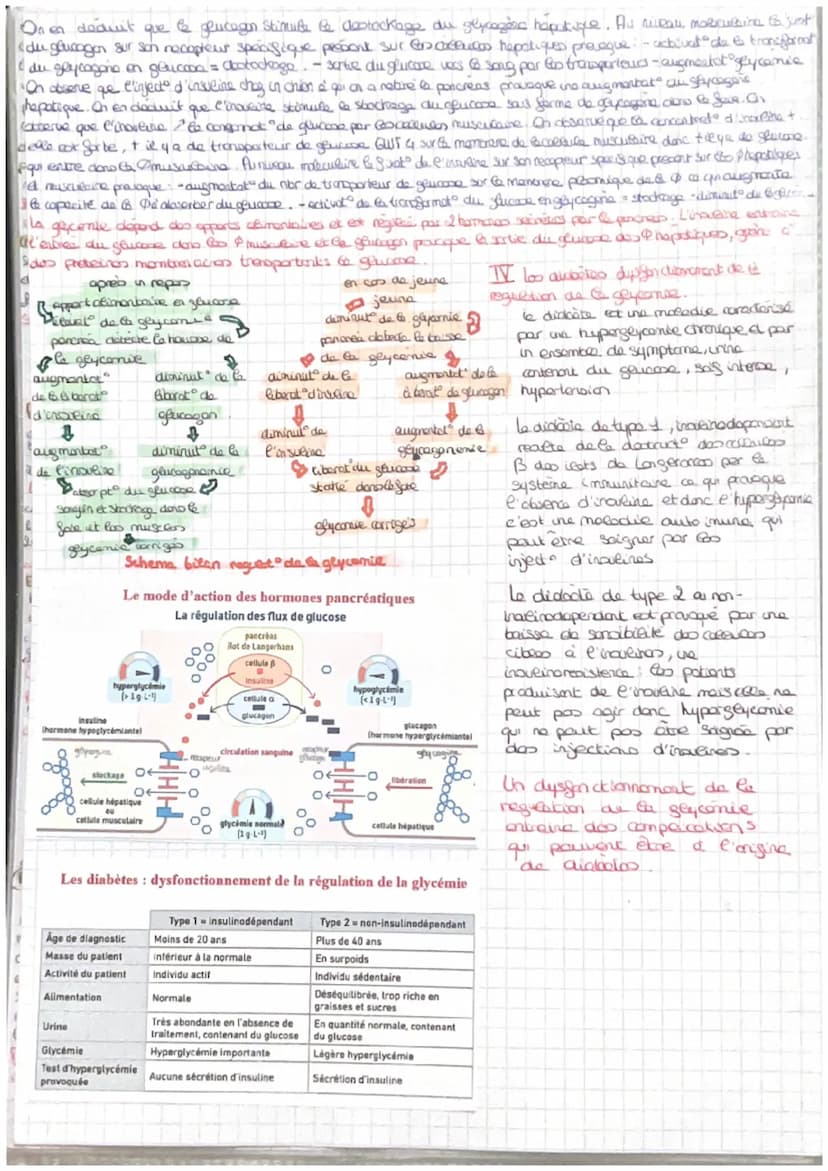 On en déduit que le glucagon stimule le destockage du glycogène hépatique. Au niveau moléculaire la fixat°
du glucagon sur son récepteur spécifique présent sur les cellules hépatiques provoque : - activat° de la transformat°
du glycogène en glucose = destockage. - sortie du glucose vers le sang par les transporteurs - augmentat° glycémie
On observe que l'inject° d'insuline chez un chien à qui on a retiré le pancreas provoque une augmentat° du glycogène
hépatique. On en déduit que l'insuline stimule le stockage du glucose sous forme de glycogène dans le foie. On
observe que l'insuline ↗ la consommat° de glucose par les cellules musculaire. On observe que la concentrat° d'insuline +
elle est forte, + il y a de transporteur de glucose GLUT 4 sur la membrane de la cellule musculaire donc + il y a de glucose
qui entre dans la musculaire. Au niveau moléculaire la fixat° de l'insuline sur son récepteur spécifique présent sur les hépatiques
et musculaire provoque : - augmentat° du nbr de transporteur de glucose sur la membrane plasmique de la ce qui augmente
la capacité de la d'absorber du glucose. - activat° de la transformat° du glucose en glycogène = stockage - diminut° de
La glycémie dépend des apports alimentaires et est réglée par 2 hormones sécrétées par le pancreas. L'insuline entraine
l'entrée du glucose dans les musculaire et le glucagon provoque la sortie du glucose des hépatiques, grâce à
des protéines membranaires transportants le glucose.
après un repas
apport alimentaire en glucose
élévat° de la glycémie
pancréa détecte la hausse de
la glycémie
augmentat°
de la libérat°
d'insuline
diminut° de la
liberat° de
glucagon
augmentat°
de l'insuline
diminut° de la
glucagonémie
absorpt° du glucose
sanguin et stockage dans le
foie et les muscles
glycémie corrigée
en cas de jeune
jeune
diminut° de la glycémie
pancréa détecte la baisse
de la glycémie
diminut° de la
liberat° d'insuline
augmentat° de la
liberat° de glucagon
diminut° de
l'insuline
augmentat° de la
glucagonémie
liberat° du glucose
stocké dans le foie
glycémie corrigée
Schema bilan regulat° de la glycemie
IV Les diabètes dysfonctionnement de la
régulation de la glycémie.
Le diabète est une maladie caractérisé
par une hyperglycemie chronique et par
un ensemble de symptome, urine
contenant du glucose, soif intense,
hypertension
Le diabète de type 1, insulinodépendant
résulte de la destruct° des cellules
β des ilots de Langerhans par le
système immunitaire ce qui provoque
l'absence d'insuline et donc l'hyperglycémie
c'est une maladie auto imune, qui
peut être soigner par les
inject° d'insulines
Le diabète de type 2 ou non-
insulinodépendant est provoqué par une
baisse de sensibilité des cellules
cibles à l'insuline, une
insulinoresistance : les patients
produisent de l'insuline mais elle ne
peut pas agir donc hyperglycémie
qui ne peut pas être soignée par
des injections d'insulines.
Un dysfonctionnement de la
régulation de la glycémie
entraine des complications
qui peuvent être à l'origine
de diabètes.
Le mode d'action des hormones pancréatiques
La régulation des flux de glucose
pancréas
îlot de Langerhans
cellule β
insuline
cellule α
glucagon
hyperglycémie
(> 1 g·L⁻¹)
hypoglycémie
(< 1 g·L⁻¹)
insuline
(hormone hypoglycémiante)
glucagon
(hormone hyperglycémiante)
glycogène
recepteur
insuline
circulation sanguine
recepteur
glucagon
glycogène
stockage
libération
cellule hépatique
ou
cellule musculaire
glycémie normale
(1 g·L⁻¹)
cellule hépatique
Les diabètes : dysfonctionnement de la régulation de la glycémie
Type 1 = insulinodépendant Type 2 = non-insulinodépendant
Âge de diagnostic Moins de 20 ans Plus de 40 ans
Masse du patient Inférieur à la normale En surpoids
Activité du patient Individu actif Individu sédentaire
Alimentation Normale Déséquilibrée, trop riche en
graisses et sucres
Urine Très abondante en l'absence de
traitement, contenant du glucose En quantité normale, contenant
du glucose
Glycémie Hyperglycémie importante Légère hyperglycémie
Test d'hyperglycémie
provoquée Aucune sécrétion d'insuline Sécrétion d'insuline